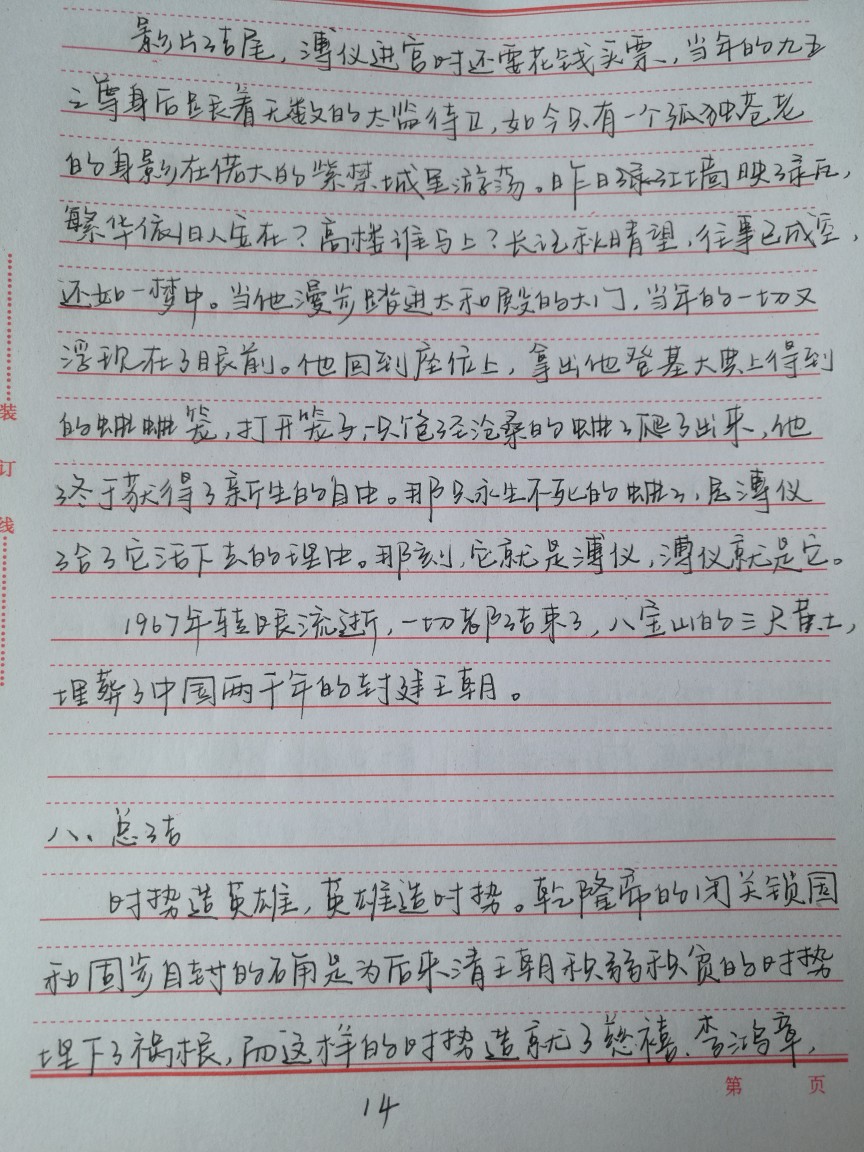 影片结尾，溥仪进宫时还要花钱买票，当年的九五
之尊身后跟着无数的太监待卫，如今只有一个孤独苍老
的身影在偌大的紫禁城里游荡。昨日绿红墙映绿瓦，
繁华依旧人安在？高楼谁与上？长记秋晴望，往事已成空，
还如一梦中。当他漫步踏进太和殿的大门，当年的一切又
浮现在了眼前。他回到座位上，拿出他登基大典上得到
的蝈蝈笼，打开笼子，一只饱经沧桑的蝈蝈爬了出来，他
终于获得了新生的自由。那只永生不死的蝈蝈，是溥仪
给了它活下去的理由。那刻，它就是溥仪，溥仪就是它。
1967年转眼流逝，一切都结束了，八宝山的三尺黄土，
埋葬了中国两千年的封建王朝。
八、总结
时势造英雄，英雄造时势。乾隆帝的闭关锁国
和固步自封的确是为后来清王朝积弱积贫的时势
埋下了祸根，而这样的时势造就了慈禧、李鸿章，
装
订
线
第 页
14